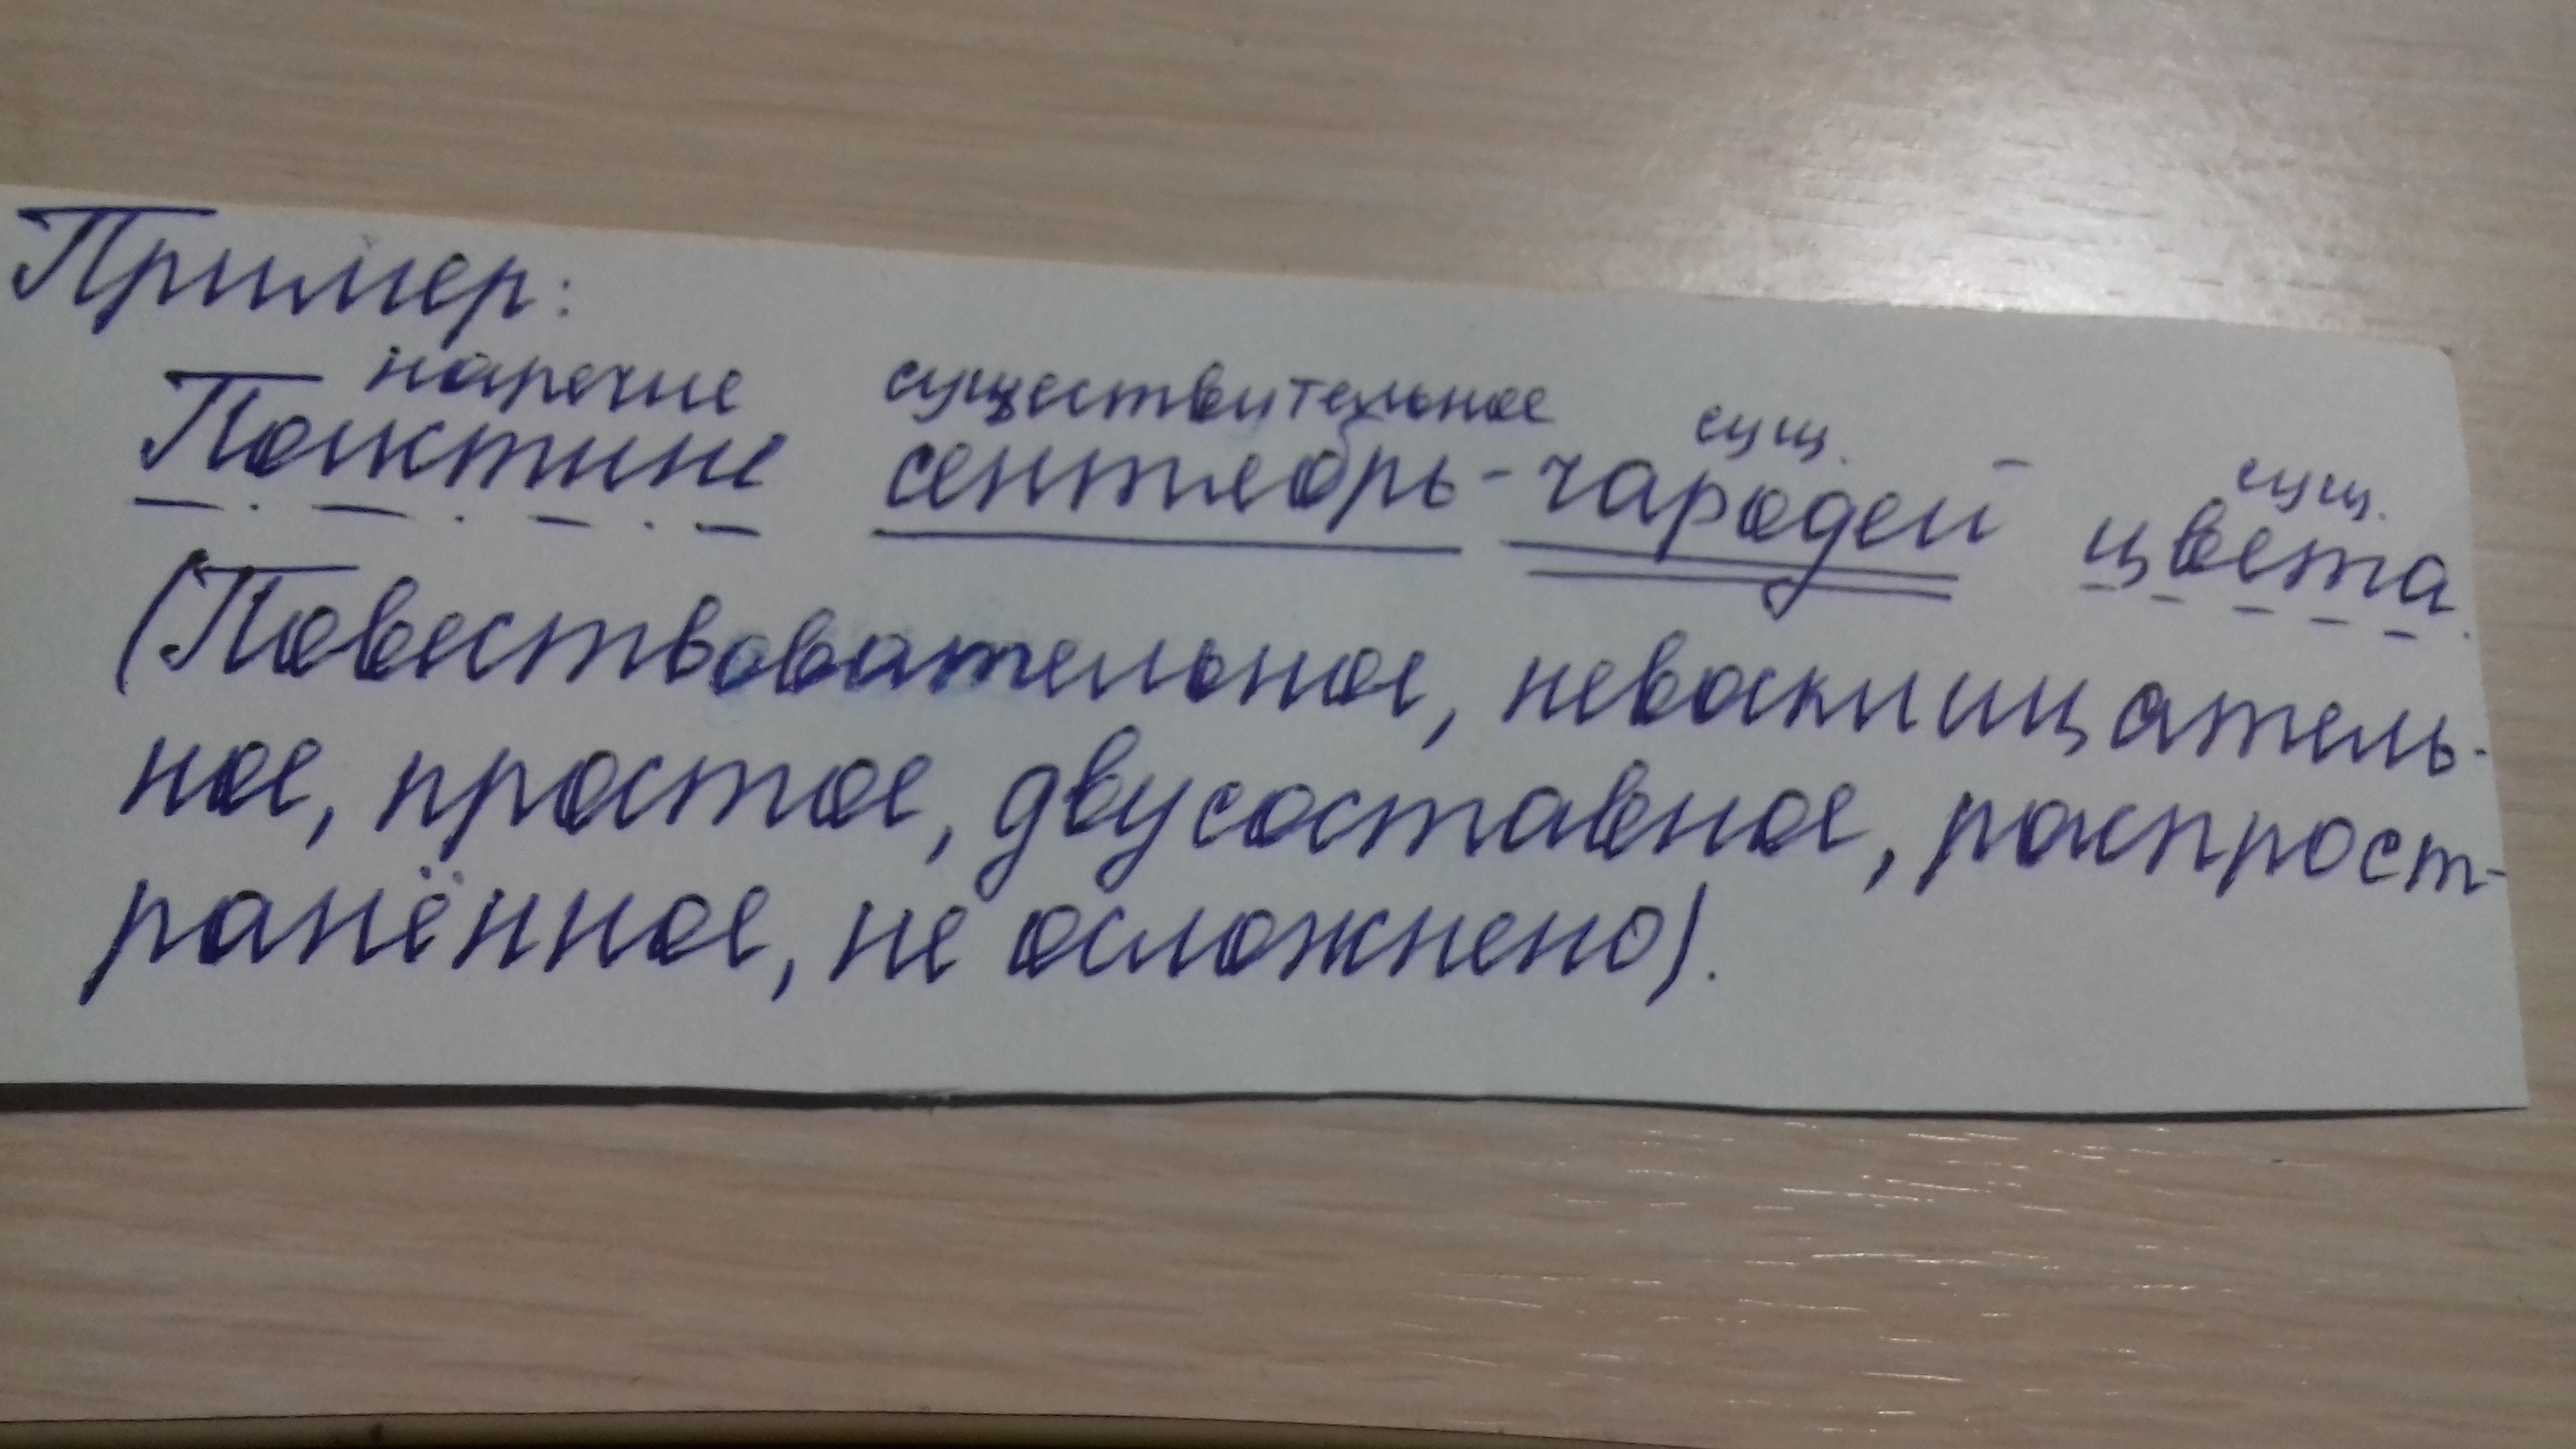 Пример:
наречие существительное сущ. сущ.
Поистине сентябрь - чародей цвета.
(Повествовательное, невосклицатель-
ное, простое, двусоставное, распрост-
ранённое, не осложнено).